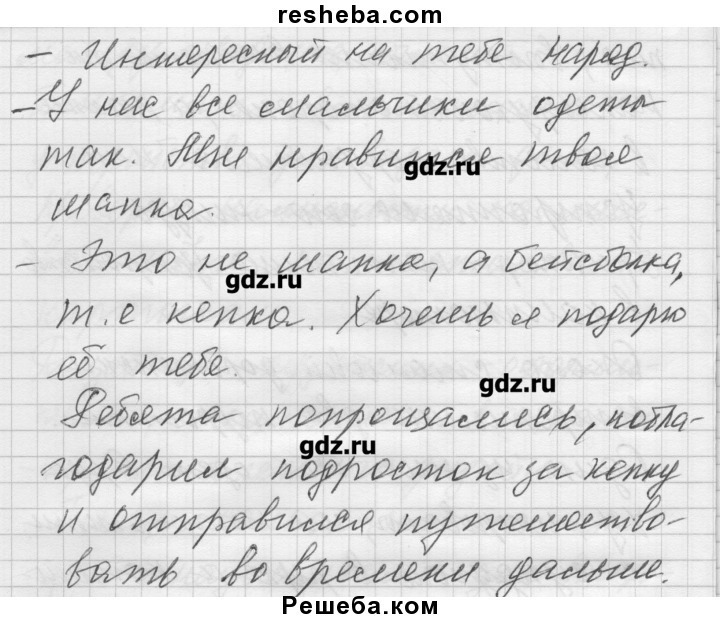 www.
resheba.com
- Интересный на тебе наряд.
- У нас все мальчики одеты
так. Мне нравится твоя
gdz.ru
шапка.
- Это не шапка, а бейсболка,
gdz.ru
т.е кепка. Хочешь я подарю
её тебе.
gdz.ru
Ребята попрощались, побла-
gdz.ru
годарил подросток за кепку
и отправился путешество-
вать во времени дальше.
Решеба.com